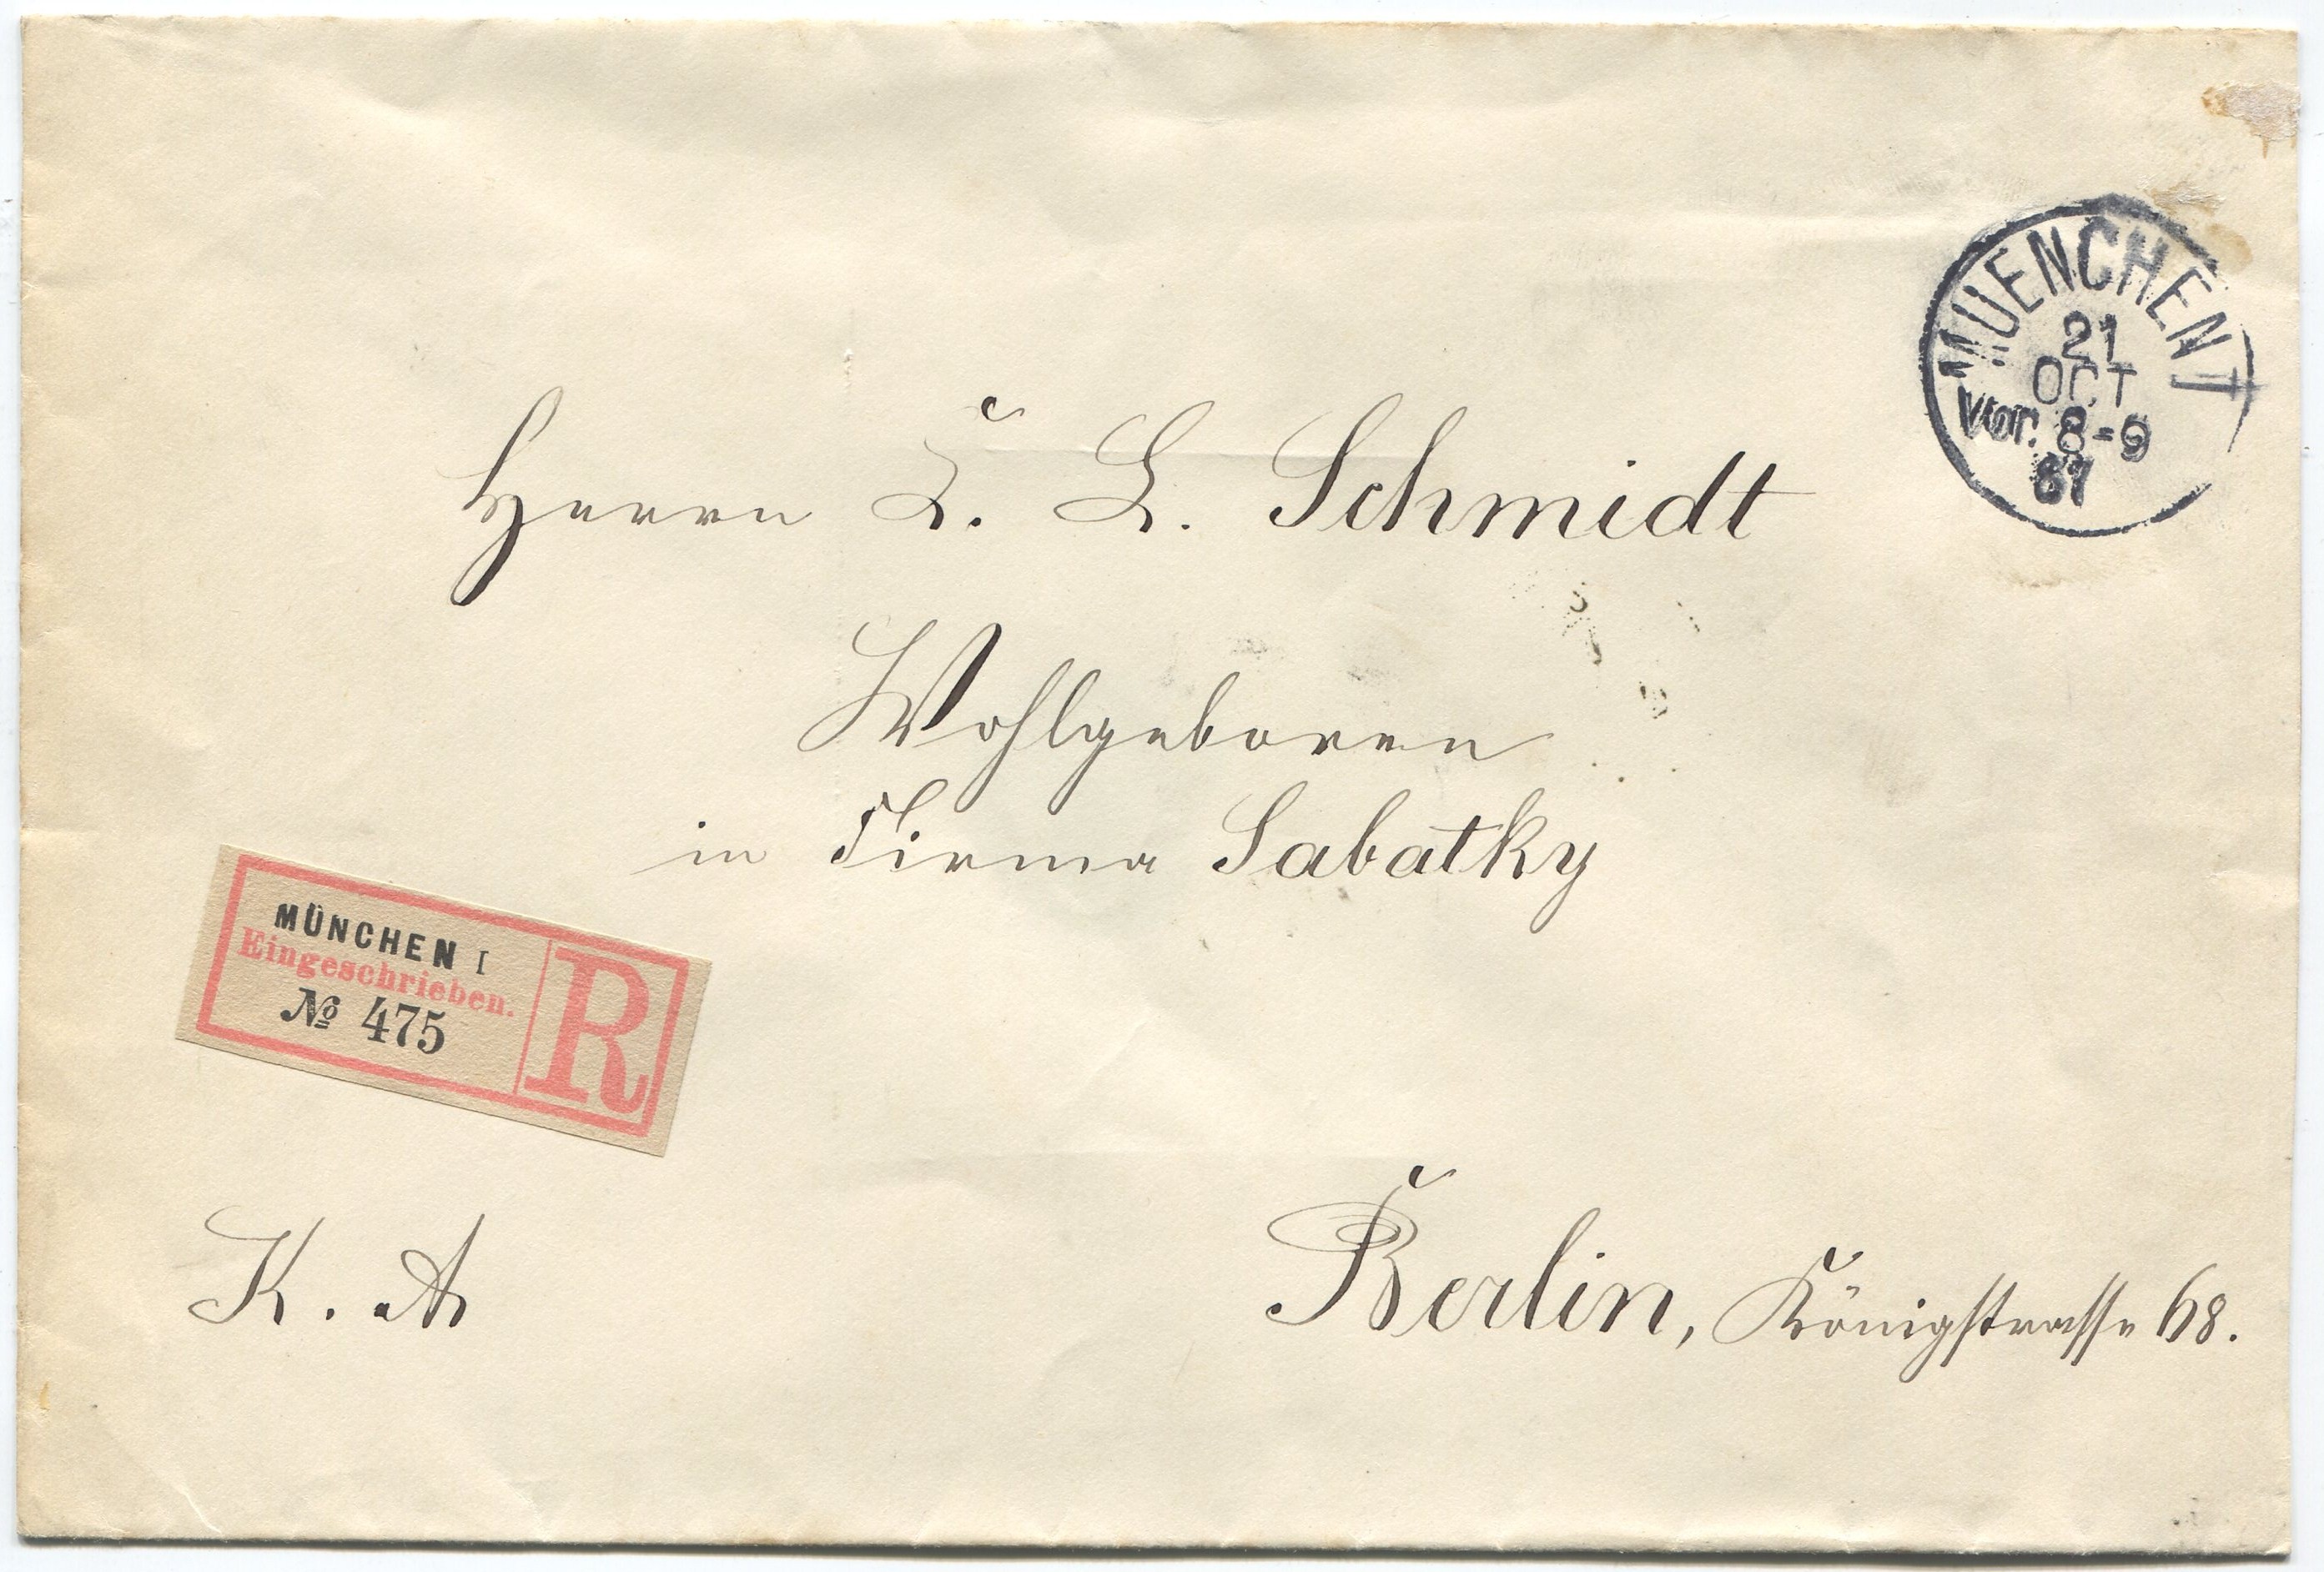 MUENCHEN I
21
OCT
Vor. 8-9
Herrn C. L. Schmidt
Wohlgeboren
in Firma Sabatky
MÜNCHEN I
Eingeschrieben.
№ 475
R
K. A
Berlin, Königstrasse 68.